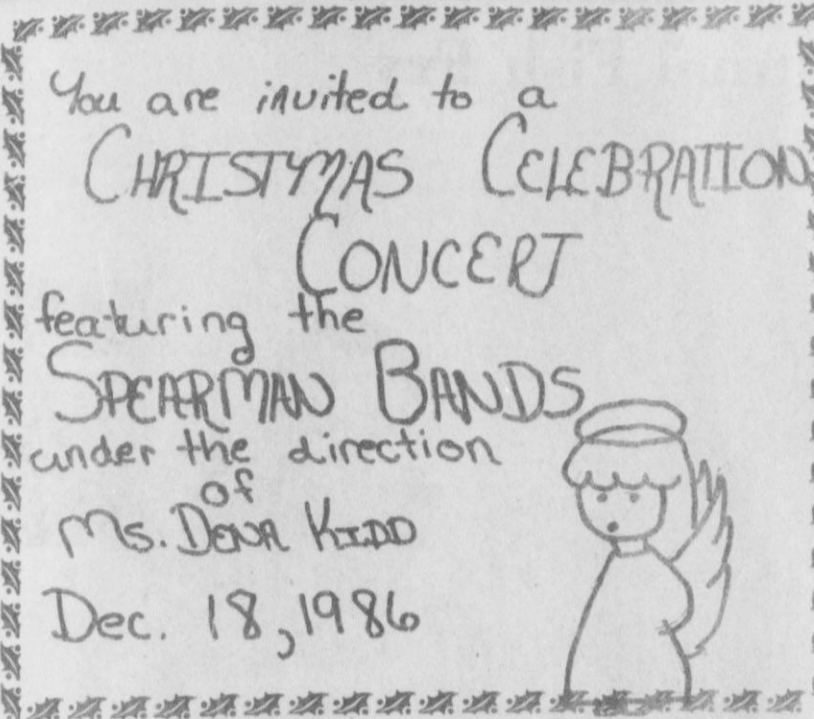 You are invited to a
CHRISTMAS CELEBRATION
CONCERT
featuring the
SPEARMAN BANDS
under the direction
of
Ms. DENA KIDD
Dec. 18, 1986